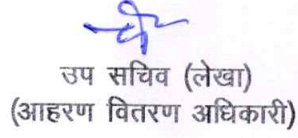 उप सचिव (लेखा)
(आहरण वितरण अधिकारी)